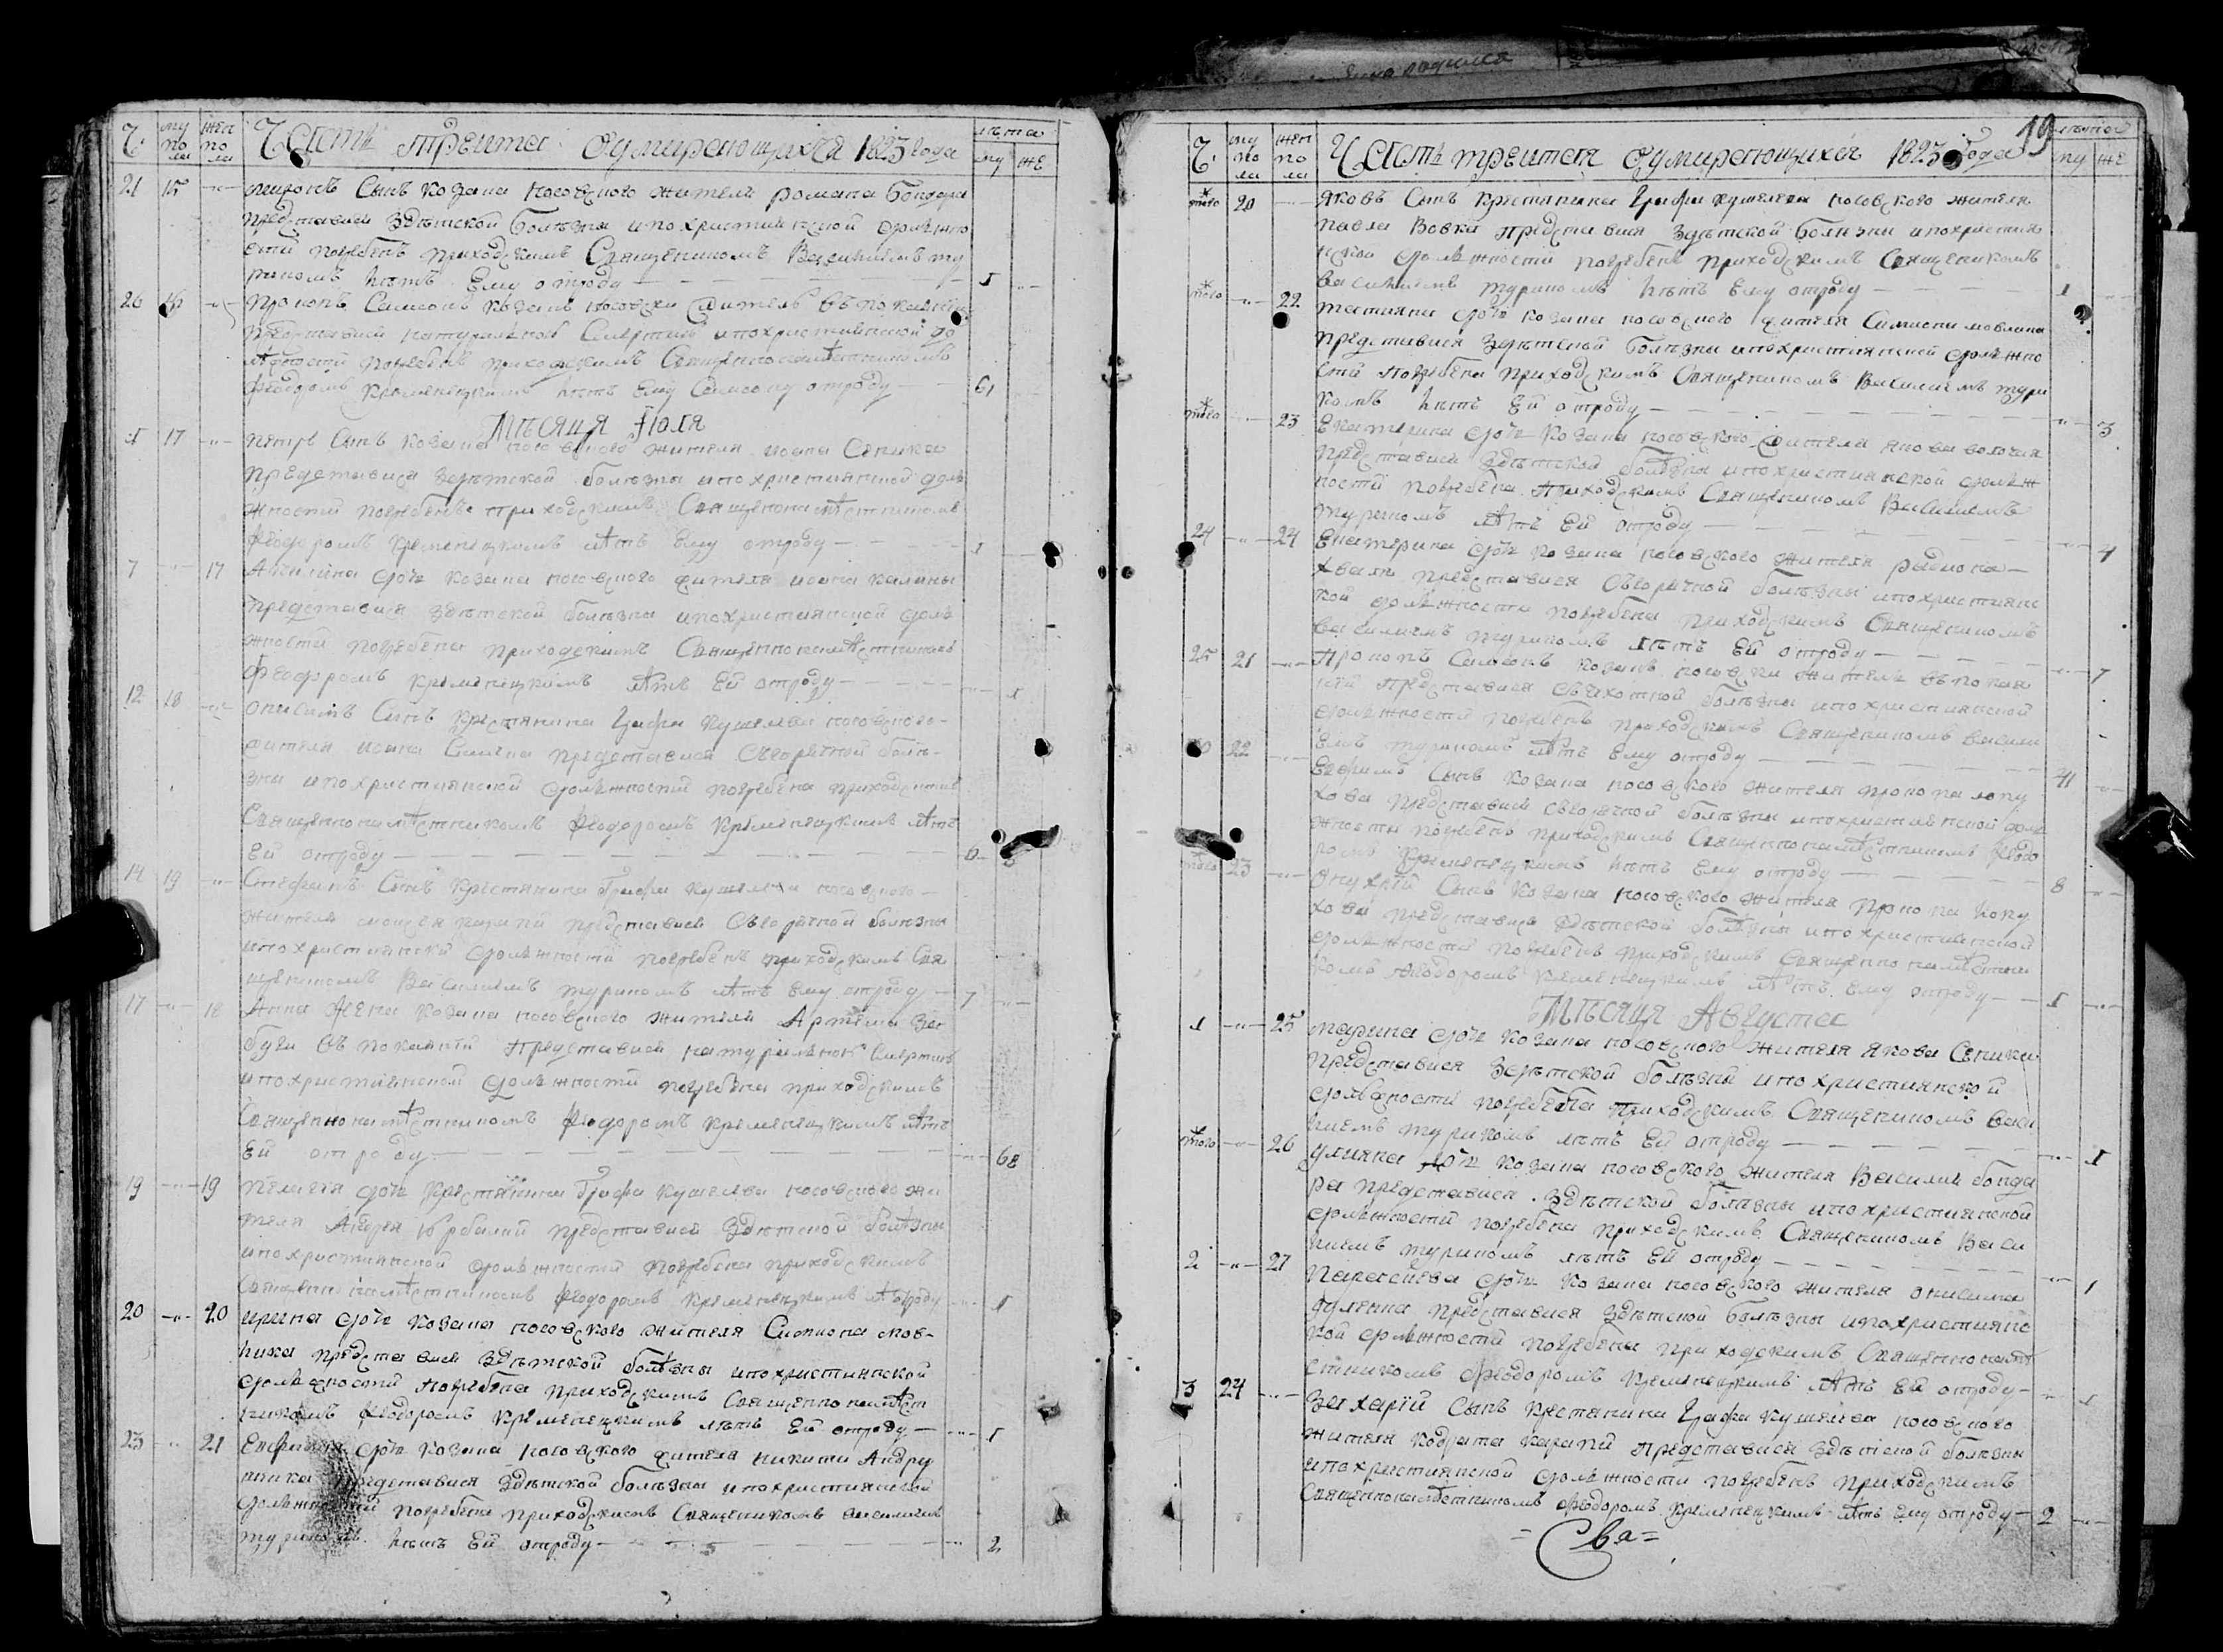 Ч. му по ла жен по ла Часть третия оумирающихся 1823 года лѣта му же
21 15 миронъ Сынъ козака носовского жителя романа бондара
представися здѣтской болѣзны ипохристиянской должно
сти погребенъ приходскимъ Священикомъ Василиемъ ту
риномъ лѣтъ Ему отроду 1
26 16 Прокопъ Самсонъ козакъ носовски житель съ покаянiем
представися натуральной Смертию ипохристиянской до
лжности погребенъ приходскимъ Священнонамѣстникомъ
Феодоромъ Кременецкимъ лѣтъ Ему Самсону отроду 61
Мѣсяця Iюля
1 17 петръ Сынъ козака носовского жителя иоана Сепика
представися здѣтской болѣзны ипохристиянской долж
жностй погребенъ приходскимъ Священонамѣстникомъ
Феодоромъ кременецкимъ лѣтъ Ему отроду 1
7 17 Акилина дочь козака носовского жителя иоана калины
представися здѣтской болѣзны ипохристиянской долж
жностй погребена приходскимъ Священнонамѣстникомъ
Феодоромъ кременецкимъ лѣтъ Ей отроду 1
12 18 онисимъ Сынъ крестянина Графа кушелева носовского
жителя иоана представися Сгорячной болѣ
зни ипохристиянской должностй погребена приходскимъ
Священнонамѣстникомъ Феодоромъ Кременецкимъ лѣтъ
Ей отроду
14 19 Стефанъ Сынъ крестянина Графа кушелева носовского
жителя представися Сгорячной болѣзны
ипохристиянскй должностй погребенъ приходскимъ Свя
щеникомъ Василиемъ туриномъ лѣтъ Ему отроду 7
17 18 Анна Жена козака носовского жителя Артема За
буги съ покаянiй представися натуральною Смертию
ипохристиянской должностй погребена приходскимъ
Священнонамѣстникомъ Феодоромъ кременецкимъ лѣтъ
Ей отроду 68
19 19 пелагея дочь крестянина Графа кушелева носовского жи
теля Андрея представися здѣтской болѣзны
ипохристиянской должностй погребена приходскимъ
Священнонамѣстникомъ Феодоромъ кременецкимъ лѣтъ отроду 1
20 20 ирина дочь козака носовского жителя Симиона мов
лика представися здѣтской болѣзны ипохристиянской
должностй погребена приходскимъ Священнонамѣст
никомъ Феодоромъ кременецкимъ лѣтъ Ей отроду 1
23 21 дочь козака носовского жителя никити Андру
шика представися здѣтской болѣзны ипохристиянской
должностй погребена приходскимъ Священикомъ василиемъ
туриномъ лѣтъ Ей отроду 2
19
Ч. му по ла жен по ла Часть третия оумирающихся 1823 Года лѣта му же
того 20 Яковъ Сынъ крестянина Графа кушелева носовского жителя
павла Вовка представися здѣтской болѣзны ипохристия
нской должностй погребенъ приходскимъ Священикомъ
василиемъ туриномъ лѣтъ Ему отроду 1
того 22 дочь козака носовского жителя Симиона мовлика
представися здѣтской болѣзны ипохристиянской должно
стй погребена приходскимъ Священикомъ Василиемъ тури
номъ лѣтъ Ей отроду 3
того 23 Екатерина дочь козака носовского жителя якова
представися здѣтской болѣзны ипохристиянской долж
ностй погребена приходскимъ Священикомъ Василиемъ
туриномъ лѣтъ Ей отроду 4
24 24 Екатерина дочь козака носовского жителя
представися Сгорячной болѣзны ипохристиянс
кой должностй погребена приходскимъ Священикомъ
василиемъ туриномъ лѣтъ Ей отроду 7
25 21 Прокопъ Самсонъ козакъ носовски житель съ покая
нiй представися болѣзны ипохристиянской
должностй погребенъ приходскимъ Священикомъ васили
емъ туриномъ лѣтъ Ему отроду 41
22 Евфимъ Сынъ козака носовского жителя прокопа
кова представися сгорячной болѣзны ипохристиянской долж
жностй погребенъ приходскимъ Священнонамѣстникомъ Феодо
ромъ Кременецкимъ лѣтъ Ему отроду 8
того 23 онуфрiй Сынъ козака носовского жителя прокопа
кова представися здѣтской болѣзны ипохристиянской
должностй погребенъ приходскимъ Священнонамѣстни
комъ Феодоромъ кременецкимъ лѣтъ Ему отроду 1
Мѣсяця Августа
1 25 марина дочь козака носовского жителя якова Сепика
представися здѣтской болѣзны ипохристиянской
должностй погребена приходскимъ Священикомъ васи
лиемъ туриномъ лѣтъ Ей отроду 1
того 26 улияна дочь козака носовского жителя Василия бонда
ра представися здѣтской болѣзны ипохристиянской
должностй погребена приходскимъ Священикомъ Васи
лиемъ туриномъ лѣтъ Ей отроду 1
2 27 параскева дочь козака носовского жителя онисима
представися здѣтской болѣзны ипохристиянс
кой должностй погребена приходскимъ Священнонамѣ
стникомъ Феодоромъ кременецкимъ лѣтъ Ей отроду 1
3 24 Захарiй Сынъ крестянина Графа кушелева носовского
жителя кодрата представися здѣтской болѣзны
ипохристиянской должности погребенъ приходскимъ
Священнонамѣстникомъ Феодоромъ Кременецкимъ лѣтъ Ему отроду 2